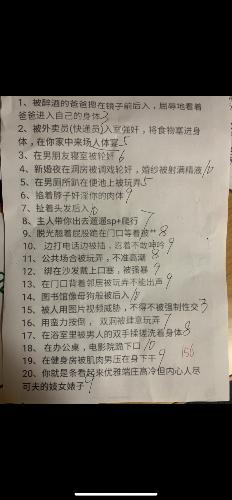 1、被醉酒的爸爸摁在镜子前后入，屈辱地看着
爸爸进入自己的身体 3
2、被外卖员(快递员)入室强奸，将食物塞进身
体，在你家中来场人体宴 5
3、在男朋友寝室被轮奸 6
4、新婚夜在洞房被调戏轮奸，婚纱被射满精液 10
5、在男厕所趴在便池上被玩弄 5
6、掐着脖子奸淫你的肉体 9
7、扯着头发后入 10
8、主人带你出去遛遛sp+爬行 7
9、脱光翘着屁股跪在门口等着被** 8
10、边打电话边被插，忍着不敢呻吟 9
11、公共场合被玩弄，不准高潮 8
12、绑在沙发戴上口塞，被强暴 9
13、在门口背着邻居被玩弄不能出声 9
14、图书馆像母狗般被后入 10
15、被人用图片视频威胁，不得不被强制性交 3
16、用蛮力按倒，双洞被肆意玩弄 7
17、在浴室里被男人的双手揉搓洗着身体 8
18、在办公桌，电影院跪下口 10
19、在健身房被肌肉男压在身下干 9
156
20、你就是条看起来优雅端庄高冷但内心人尽
可夫的妓女婊子 9